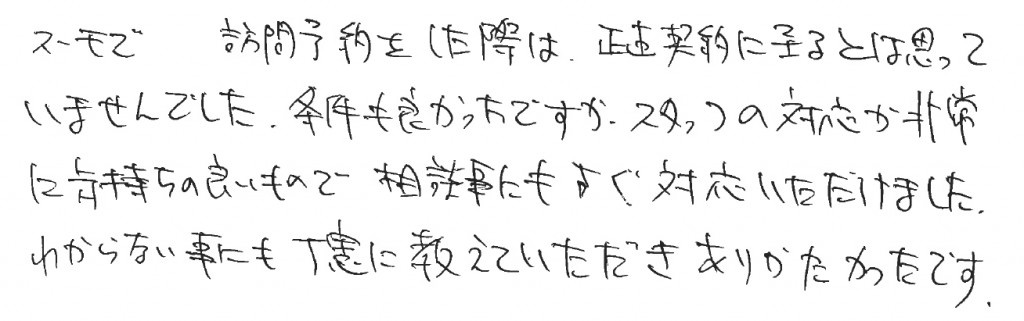 スーモで 訪問予約をした際は、正直契約に至るとは思って
いませんでした。条件も良かったですが、スタッフの対応が非常
に気持ちの良いもので 相談事にもすぐ対応いただけました。
わからない事にも丁寧に教えていただきありがたかったです。